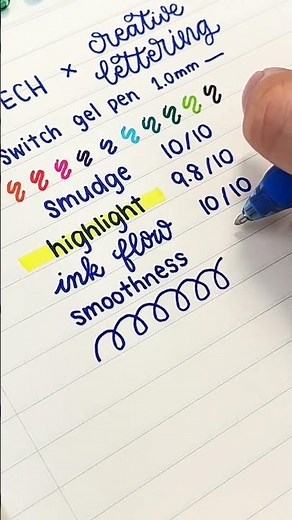 ECH x creative lettering
Switch gel pen 1.0mm —
smudge 10/10
highlight 9.8/10
ink flow 10/10
smoothness